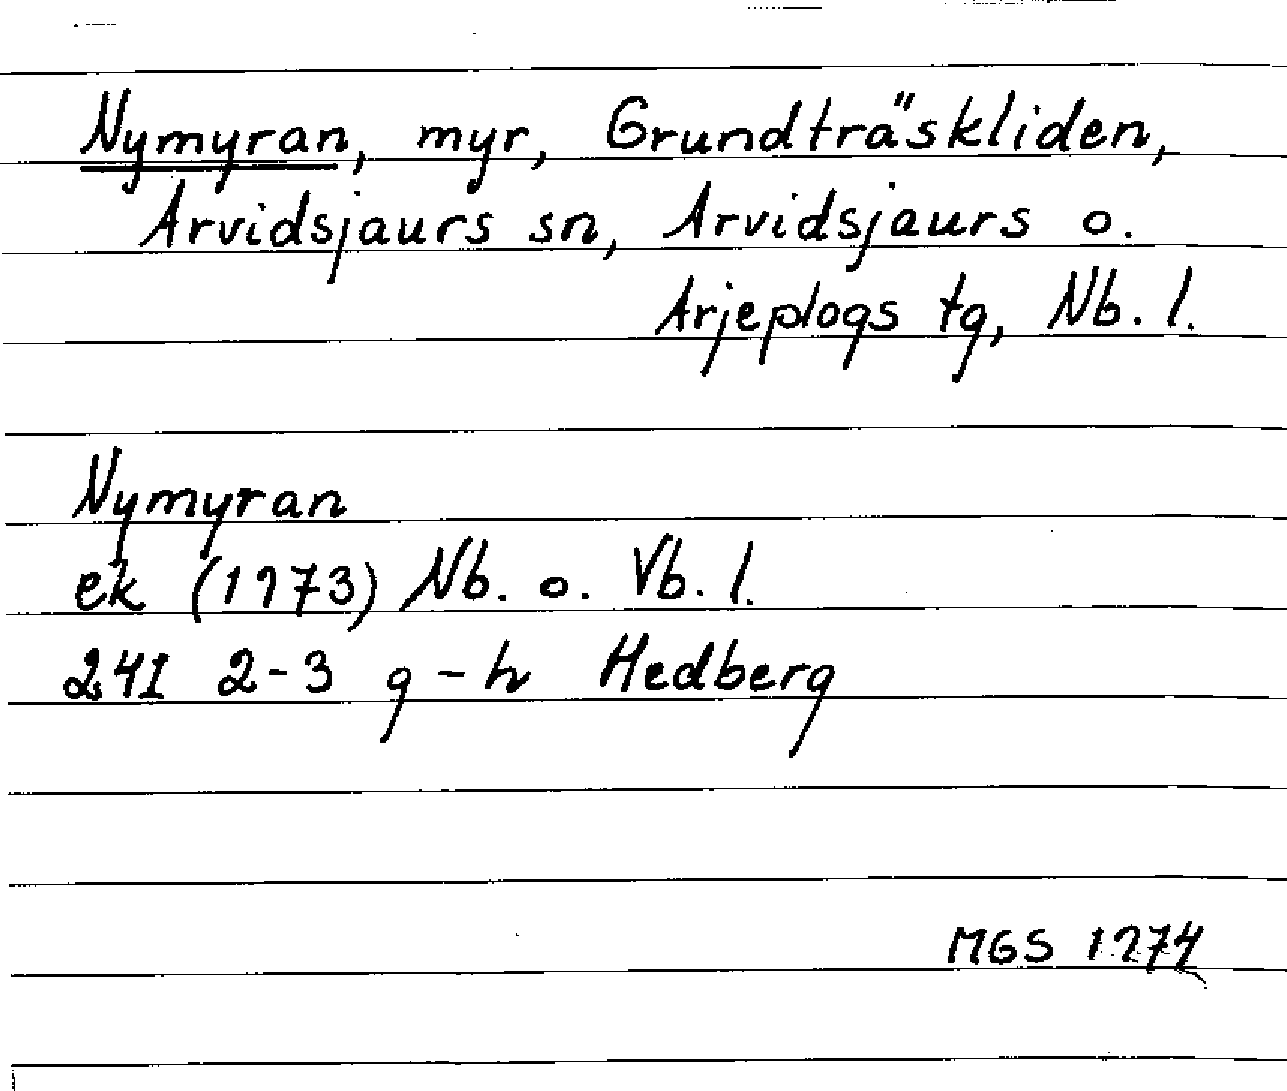 Nymyran, myr, Grundträskliden,
Arvidsjaurs sn, Arvidsjaurs o.
Arjeplogs tg, Nb. l.
Nymyran
ek (1973) Nb. o. Vb. l.
24I 2-3 g-h Hedberg
MGS 1974